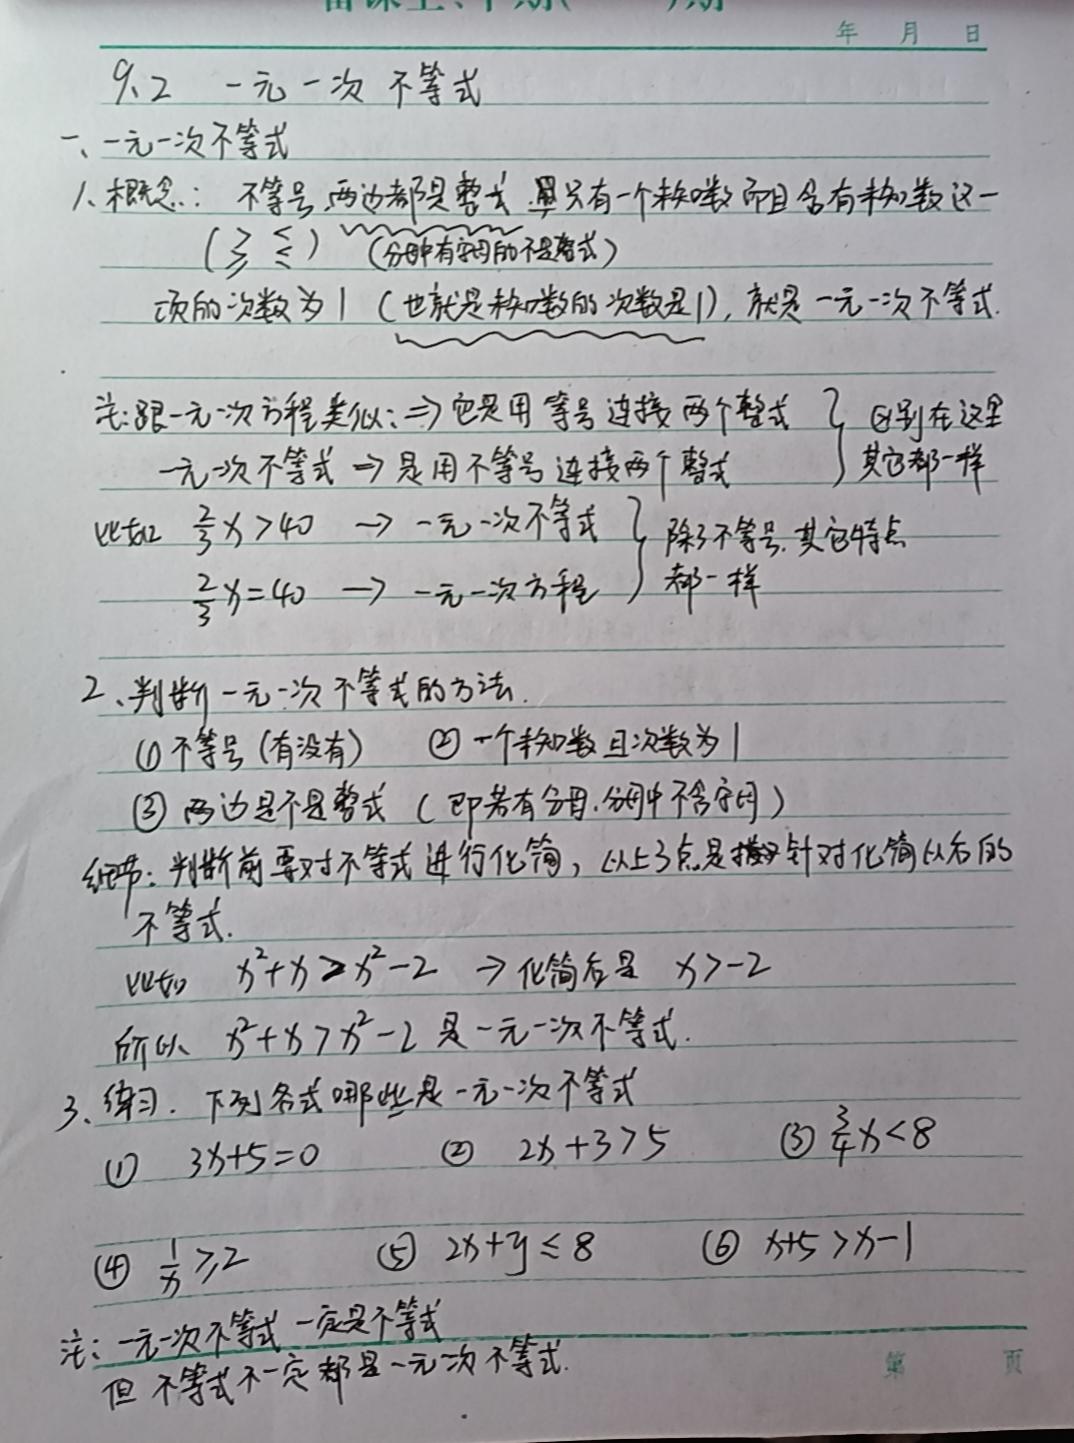 年 月 日
9、2 一元一次不等式
一、一元一次不等式
1、概念： 不等号 两边都是整式 只有一个未知数 而且含有未知数这一
（≥ ≤） （分母中有字母的不是整式）
项的次数为1（也就是未知数的次数是1），就是一元一次不等式.
注：跟一元一次方程类似：⇒它是用等号连接两个整式 } 区别在这里
一元一次不等式 ⇒ 是用不等号连接两个整式 其它都一样
比如 2/3 x＞40 → 一元一次不等式 } 除了不等号.其它特点
2/3 x=40 → 一元一次方程 都一样
2、判断一元一次不等式的方法.
① 不等号（有没有） ② 一个未知数且次数为1
③ 两边是不是整式（即若有分母.分母中不含字母）
细节：判断前要对不等式进行化简，以上3点是针对化简以后的
不等式.
比如 x²+x＞x²-2 → 化简后是 x＞-2
所以 x²+x＞x²-2 是一元一次不等式.
3、练习. 下列各式哪些是一元一次不等式
① 3x+5=0 ② 2x+3＞5 ③ 3/4 x＜8
④ 1/x ≥2 ⑤ 2x+y≤8 ⑥ x+5＞x-1
注：一元一次不等式一定是不等式
但不等式不一定都是一元一次不等式.
第 页